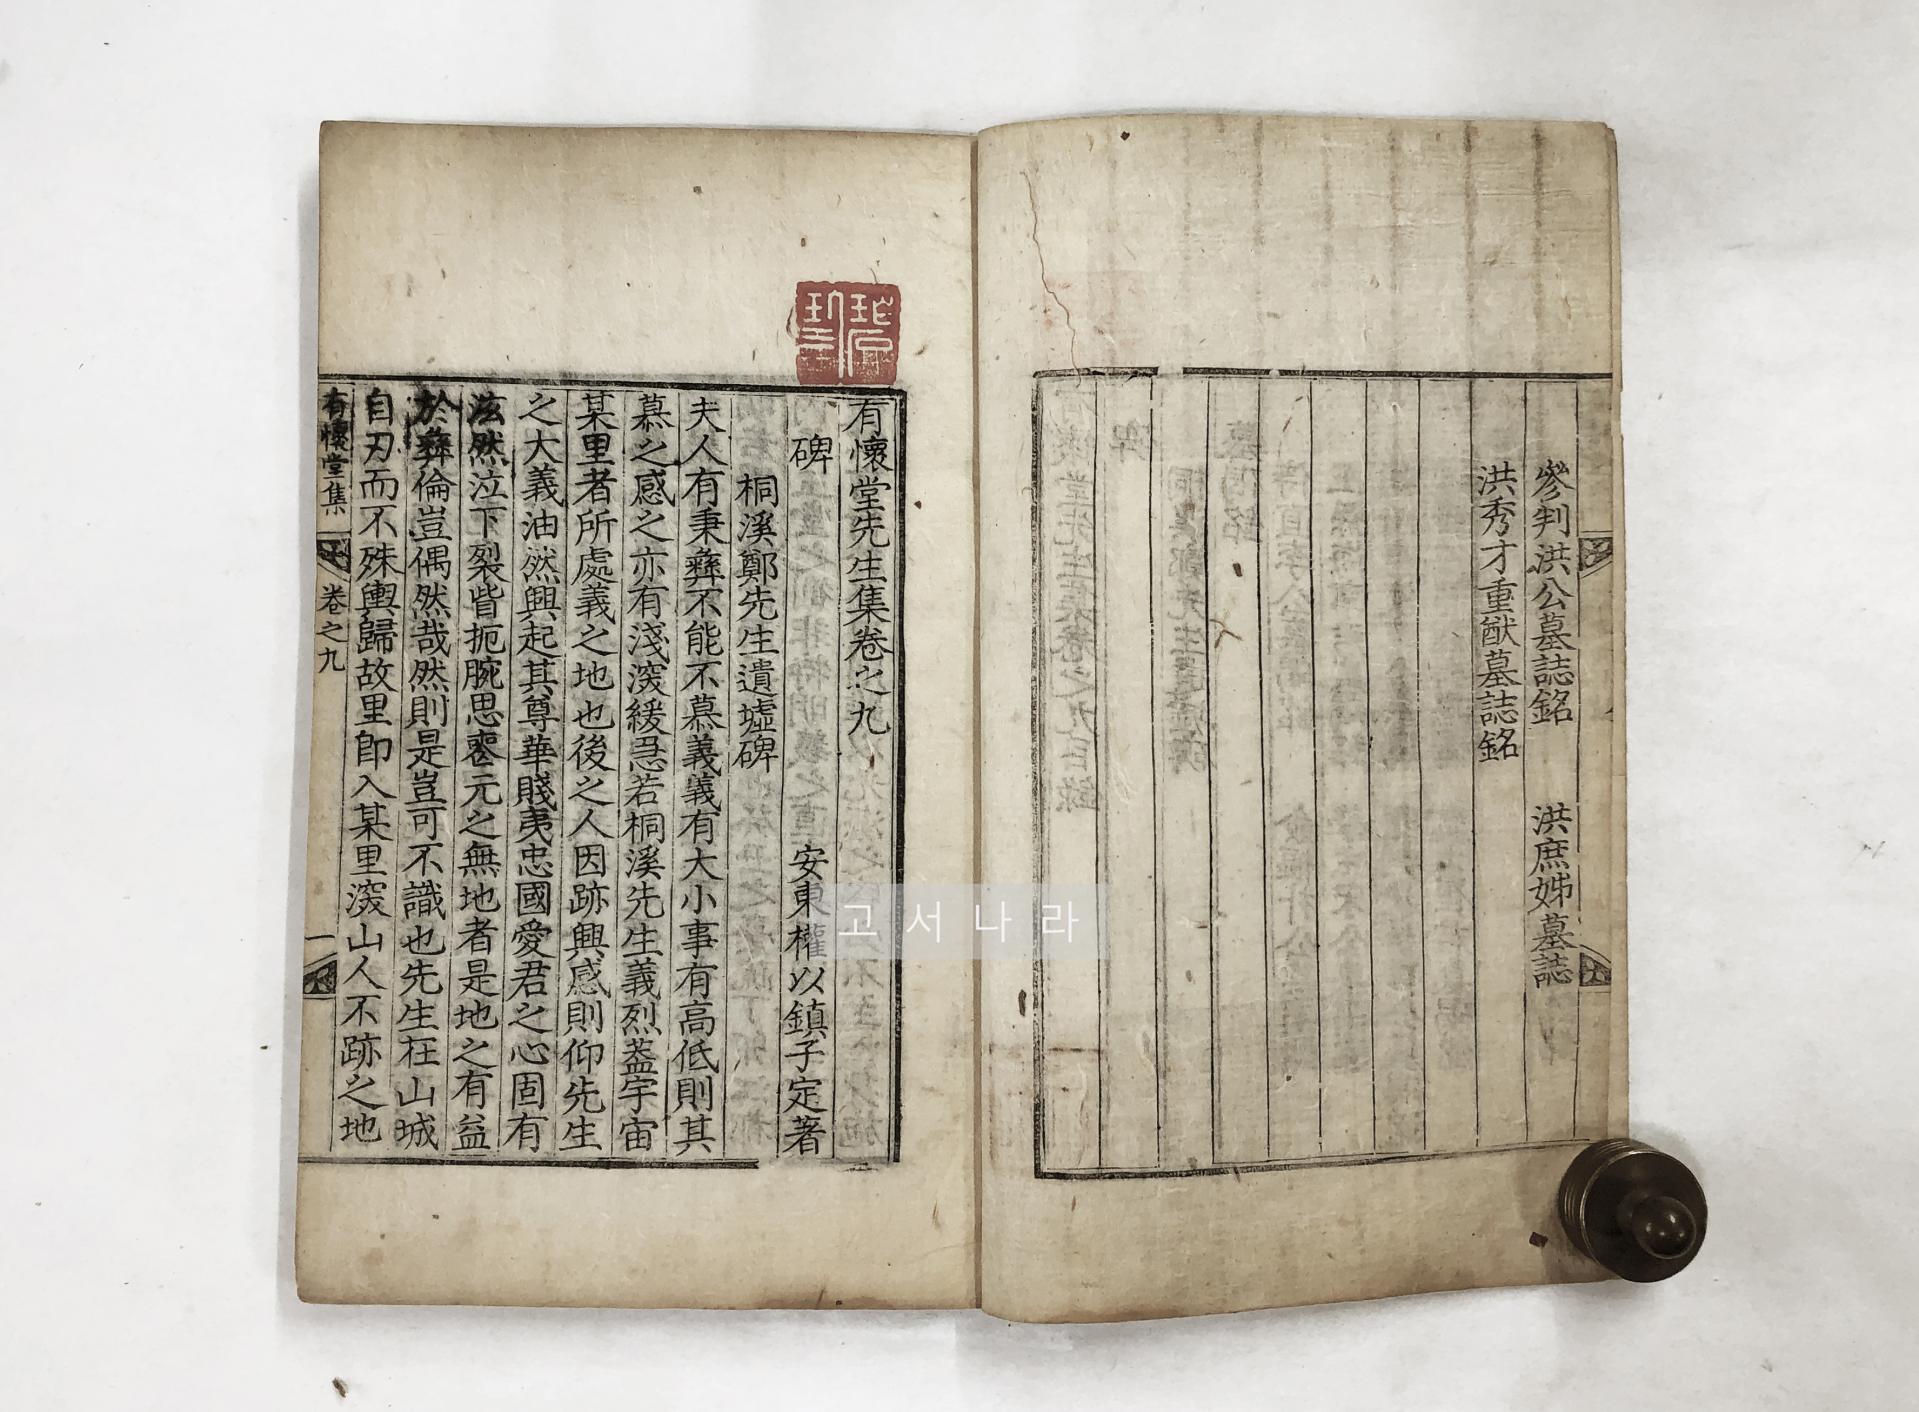 參判洪公墓誌銘 洪庶姊墓誌
洪秀才重猷墓誌銘
有懷堂先生集卷之九
碑 安東權以鎮子定著
桐溪鄭先生遺墟碑
夫人有秉彝不能不慕義義有大小事有高低則其
慕之感之亦有淺深緩忍若桐溪先生義烈盖宇宙
某里者所處義之地也後之人因跡興感則仰先生
之大義油然興起其尊華賤夷忠國愛君之心固有
泫然泣下裂眥扼腕思喪元之無地者是地之有益
於彝倫豈偶然哉然則是豈可不識也先生在山城
自刃而不殊輿歸故里卽入某里深山人不跡之地
有懷堂集 卷之九 一
고서나라